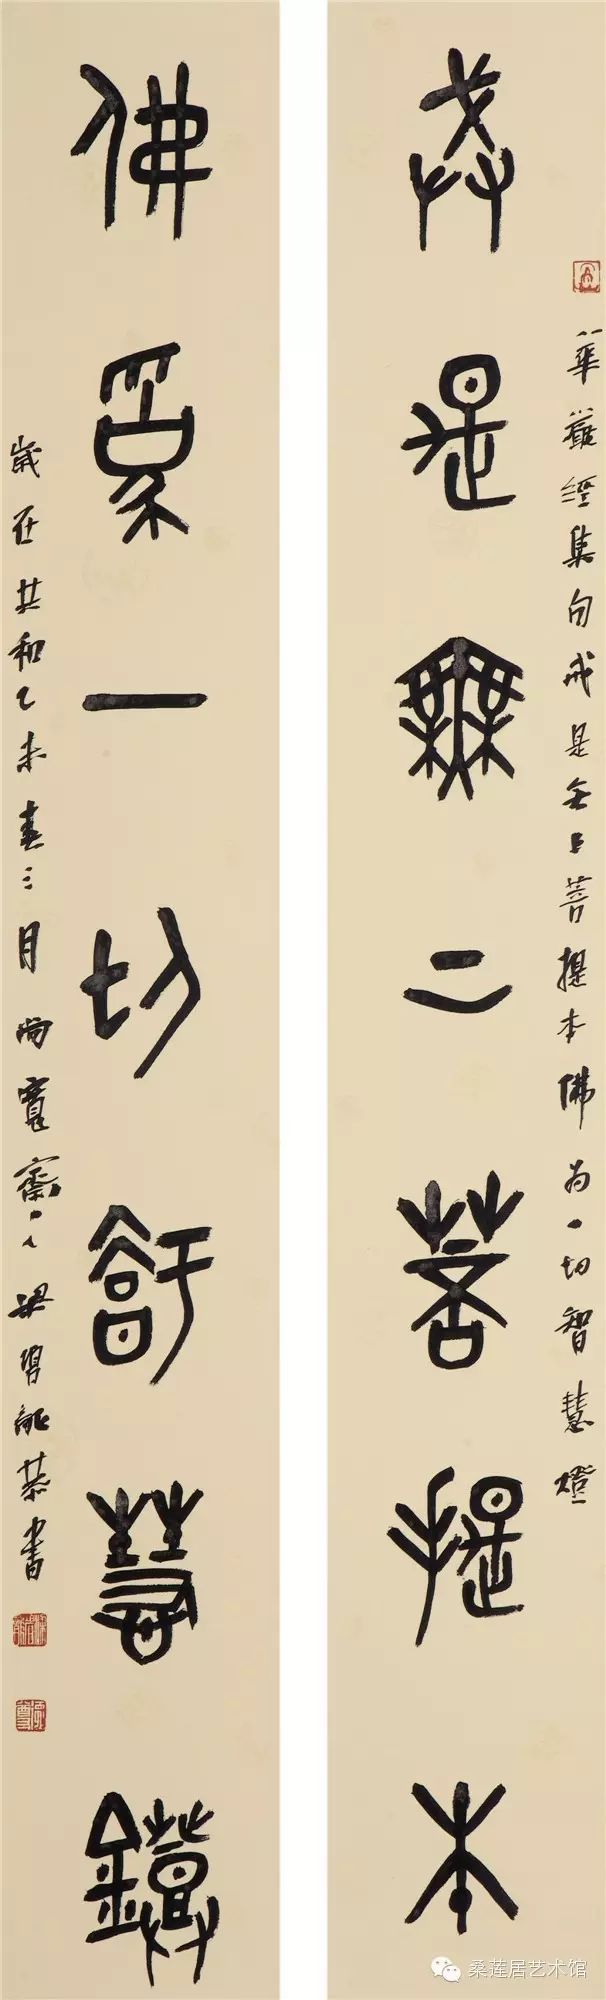 戒是無上菩提本
華嚴經集句戒是无上菩提本佛为一切智慧燈
佛為一切智慧鐙
歲在共和乙未春三月尚寬齋主人梁 恭書
桑莲居艺术馆